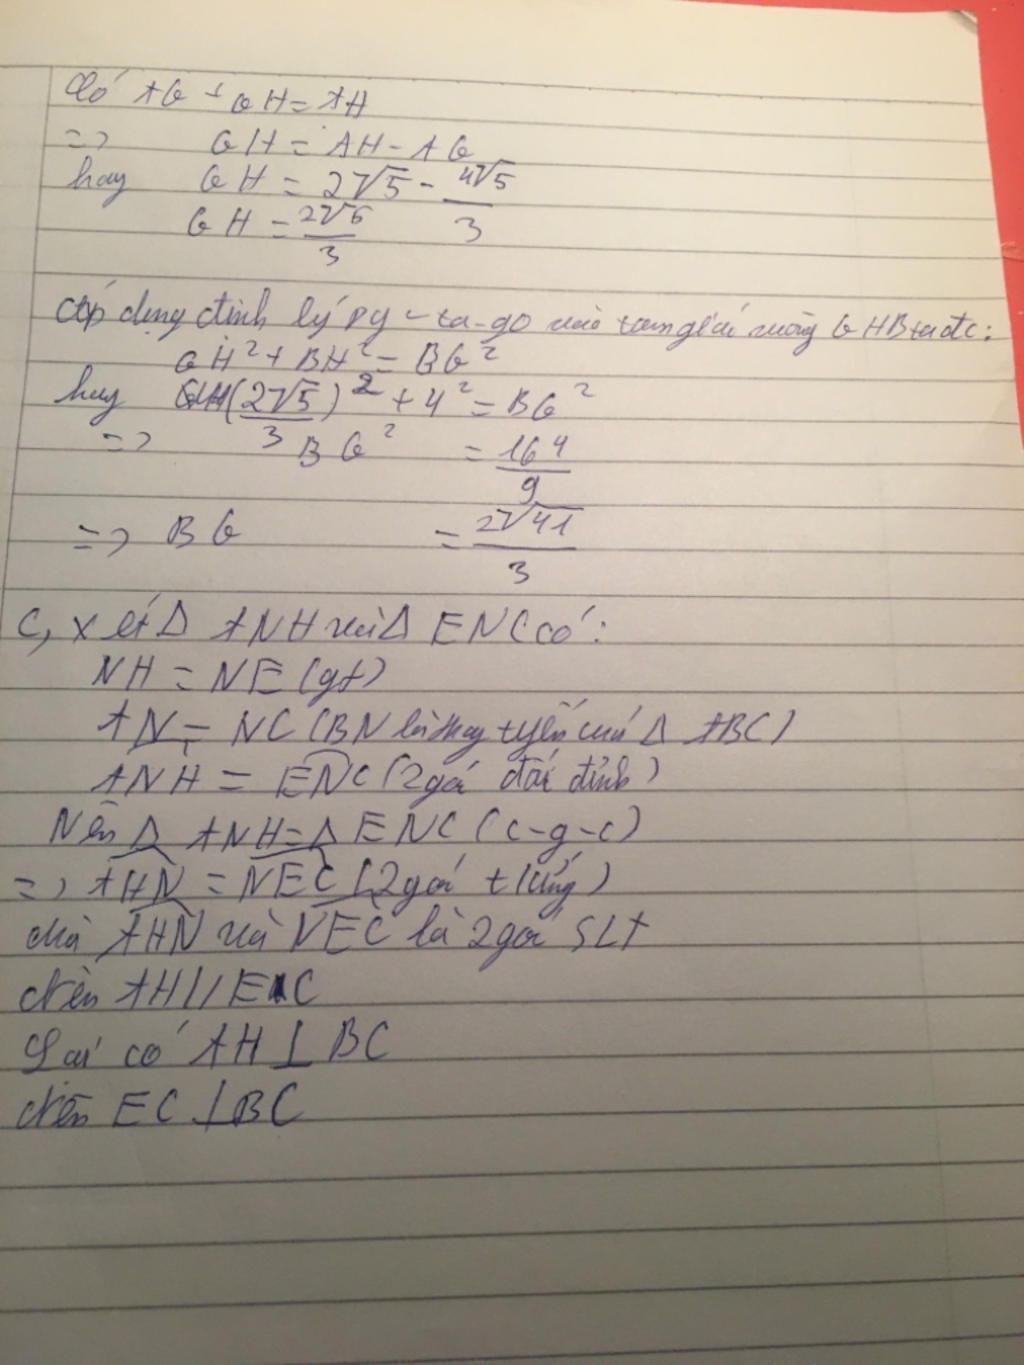 Có AG + GH = AH
=> GH = AH - AG
hay GH = 2√5 - 4√5/3
GH = 2√5/3
Áp dụng định lý py-ta-go vào tam giác vuông GHB ta đc:
GH² + BH² = BG²
hay (2√5/3)² + 4² = BG²
=> BG² = 164/9
=> BG = 2√41/3
C, Xét Δ ANH và Δ ENC có:
NH = NE (gt)
AN = NC (BN là trung tuyến của Δ ABC)
ANH = ENC (2 góc đối đỉnh)
Nên Δ ANH = Δ ENC (c-g-c)
=> AHN = NEC (2 góc t/ứng)
mà AHN và NEC là 2 góc SLT
nên AH // EC
Lại có AH ⊥ BC
nên EC ⊥ BC